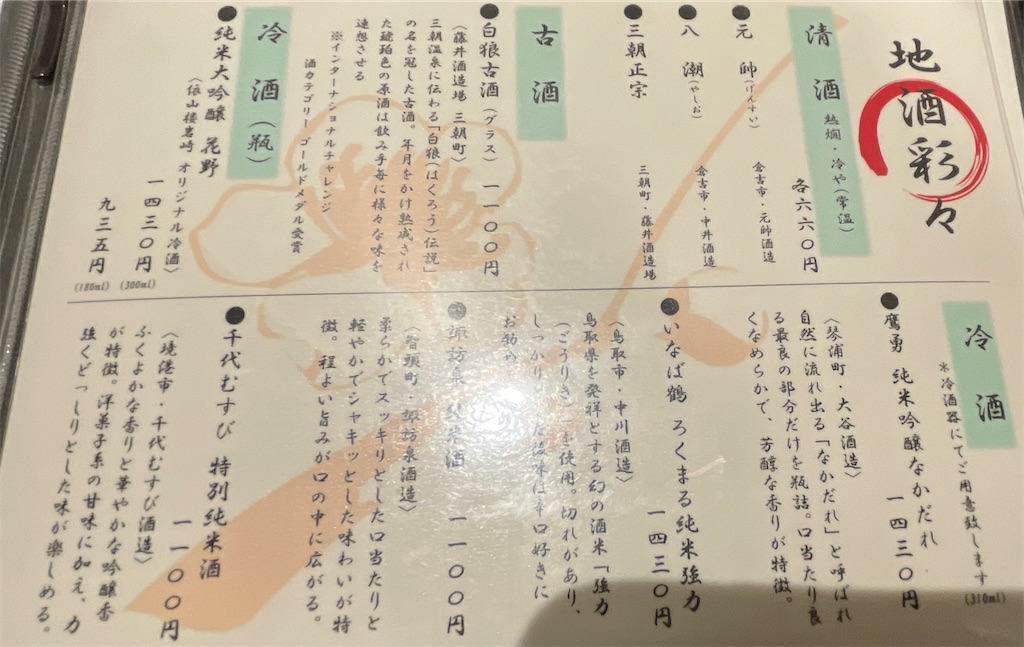 地酒彩々
清酒 熱燗・冷や(常温)
各六六〇円
●元帥(げんすい) 倉吉市・元帥酒造
●八潮(やしお) 倉吉市・中井酒造
●三朝正宗 三朝町・藤井酒造場
古酒
●白狼古酒(グラス) 一一〇〇円
〈藤井酒造場 三朝町〉
三朝温泉に伝わる「白狼(はくろう)伝説」
の名を冠した古酒。年月をかけ熟成され
た琥珀色の原酒は飲み手毎に様々な味を
連想させる
※インターナショナルチャレンジ
酒カテゴリー ゴールドメダル受賞
冷酒(瓶)
●純米大吟醸 花野
〈依山楼岩崎 オリジナル冷酒〉
一四三〇円(300ml)
九三五円(180ml)
冷酒
*冷酒器にてご用意致します(310ml)
●鷹勇 純米吟醸なかだれ
一四三〇円
〈琴浦町・大谷酒造〉
自然に流れ出る「なかだれ」と呼ばれ
る最良の部分だけを瓶詰。口当たり良
くなめらかで、芳醇な香りが特徴。
●いなば鶴 ろくまる純米強力
一四三〇円
〈鳥取市・中川酒造〉
鳥取県を発祥とする幻の酒米「強力
(ごうりき)」を使用。切れがあり、
しっかりした後味は辛口好きに
お勧め。
●諏訪泉 純米酒 一一〇〇円
〈智頭町・諏訪泉酒造〉
柔らかでスッキリとした口当たりと
軽やかでシャキッとした味わいが特
徴。程よい旨みが口の中に広がる。
●千代むすび 特別純米酒
一一〇〇円
〈境港市・千代むすび酒造〉
ふくよかな香りと華やかな吟醸香
が特徴。洋菓子系の甘味に加え、力
強くどっしりとした味が楽しめる。